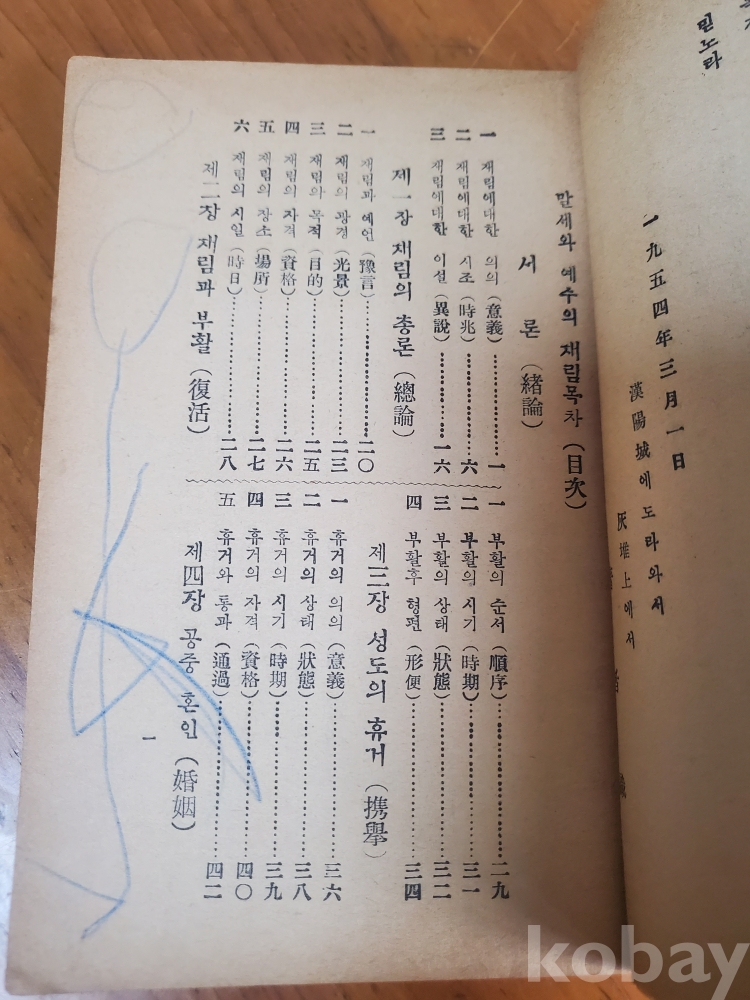 민노라
一九五四年三月一日
漢陽城에 도라와서
灰堆上에서
말세와 예수의 재림목차 (目次)
서론 (緖論)
一 재림에대한 의의 (意義) 一
二 재림에대한 시조 (時兆) 六
三 재림에대한 이설 (異說) 一六
제一장 재림의 총론 (總論)
一 재림과 예언 (豫言) 二〇
二 재림의 광경 (光景) 二三
三 재림의 목적 (目的) 二五
四 재림의 자격 (資格) 二六
五 재림의 장소 (場所) 二七
六 재림의 시일 (時日) 二八
제二장 재림과 부활 (復活)
一 부활의 순서 (順序) 二九
二 부활의 시기 (時期) 三一
三 부활의 상태 (狀態) 三二
四 부활후 형편 (形便) 三四
제三장 성도의 휴거 (携擧)
一 휴거의 의의 (意義) 三六
二 휴거의 상태 (狀態) 三八
三 휴거의 시기 (時期) 三九
四 휴거의 자격 (資格) 四〇
五 휴거와 통과 (通過) 四二
제四장 공중 혼인 (婚姻)
一
kobay